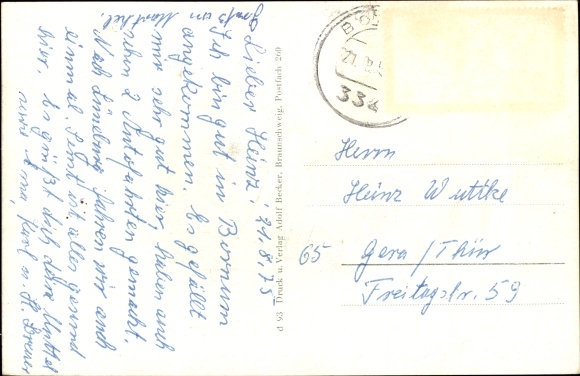 Lieber Heinz, 21.8.75
Ich bin gut in Bornum
angekommen. Es gefällt
mir sehr gut hier, haben auch
schon 2 Autofahrten gemacht.
Nach Lüneburg fahren wir auch
einmal. Sonst ist alles gesund
hier. Es grüßt dich deine Mutter
u. Oma, Karl u.
Gruß an
d 93 Druck u. Verlag Adolf Becker, Braunschweig, Postfach 260
BO
21.8.
334
Herrn
Heinz Wuttke
65 Gera / Thür
Freitagstr. 59